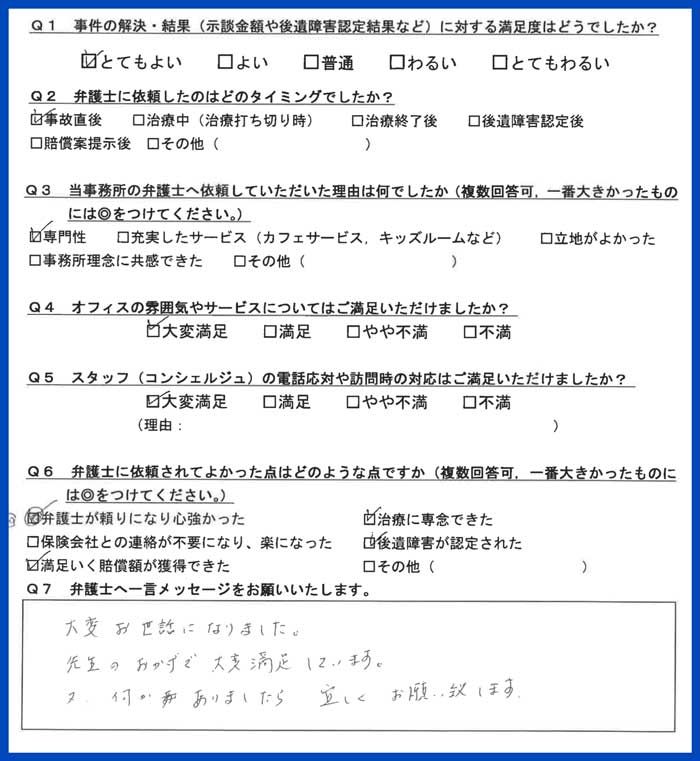 Q1 事件の解決・結果（示談金額や後遺障害認定結果など）に対する満足度はどうでしたか？
☑とてもよい □よい □普通 □わるい □とてもわるい
Q2 弁護士に依頼したのはどのタイミングでしたか？
☑事故直後 □治療中（治療打ち切り時） □治療終了後 □後遺障害認定後
□賠償案提示後 □その他（ ）
Q3 当事務所の弁護士へ依頼していただいた理由は何でしたか（複数回答可，一番大きかったもの
には◎をつけてください。）
☑専門性 □充実したサービス（カフェサービス，キッズルームなど） □立地がよかった
□事務所理念に共感できた □その他（ ）
Q4 オフィスの雰囲気やサービスについてはご満足いただけましたか？
☑大変満足 □満足 □やや不満 □不満
Q5 スタッフ（コンシェルジュ）の電話応対や訪問時の対応はご満足いただけましたか？
☑大変満足 □満足 □やや不満 □不満
（理由： ）
Q6 弁護士に依頼されてよかった点はどのような点ですか（複数回答可，一番大きかったものに
は◎をつけてください。）
☑弁護士が頼りになり心強かった ☑治療に専念できた
□保険会社との連絡が不要になり、楽になった ☑後遺障害が認定された
☑満足いく賠償額が獲得できた □その他（ ）
Q7 弁護士へ一言メッセージをお願いいたします。
大変お世話になりました。
先生のおかげで大変満足しています。
又、何かありましたら宜しくお願い致します。